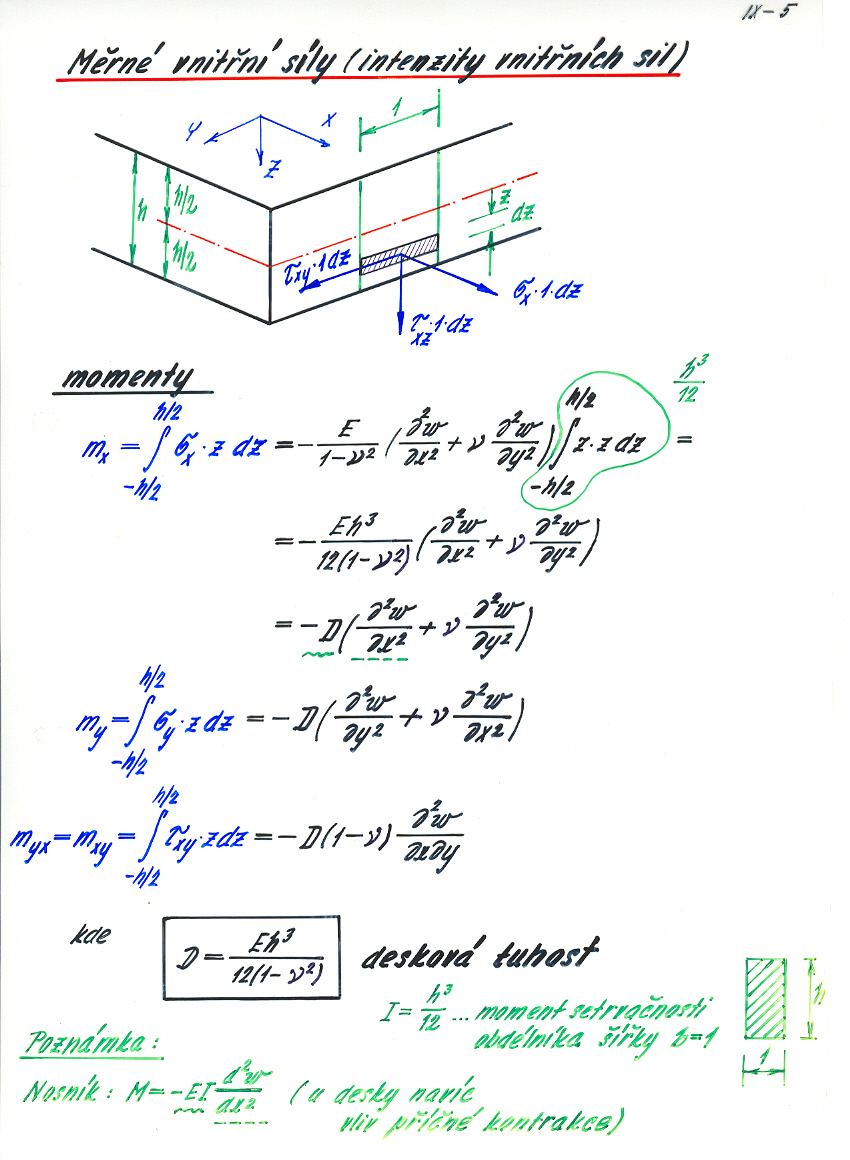 IX-5
Měrné vnitřní síly (intenzity vnitřních sil)
1
Y X
Z
h h/2 h/2
z
dz
τxy·1·dz
σx·1·dz
τxz·1·dz
momenty
h³/12
mx = ∫_{-h/2}^{h/2} σx·z dz = -E/(1-ν²) (∂²w/∂x² + ν ∂²w/∂y²) ∫_{-h/2}^{h/2} z·z dz =
= -Eh³/12(1-ν²) (∂²w/∂x² + ν ∂²w/∂y²)
= -D(∂²w/∂x² + ν ∂²w/∂y²)
my = ∫_{-h/2}^{h/2} σy·z dz = -D(∂²w/∂y² + ν ∂²w/∂x²)
myx = mxy = ∫_{-h/2}^{h/2} τxy·z dz = -D(1-ν) ∂²w/∂x∂y
kde D = Eh³/12(1-ν²) desková tuhost
I = h³/12 ... moment setrvačnosti
obdélníka šířky b=1
h
1
Poznámka:
Nosník: M = -EI d²w/dx² (u desky navíc
vliv příčné kontrakce)